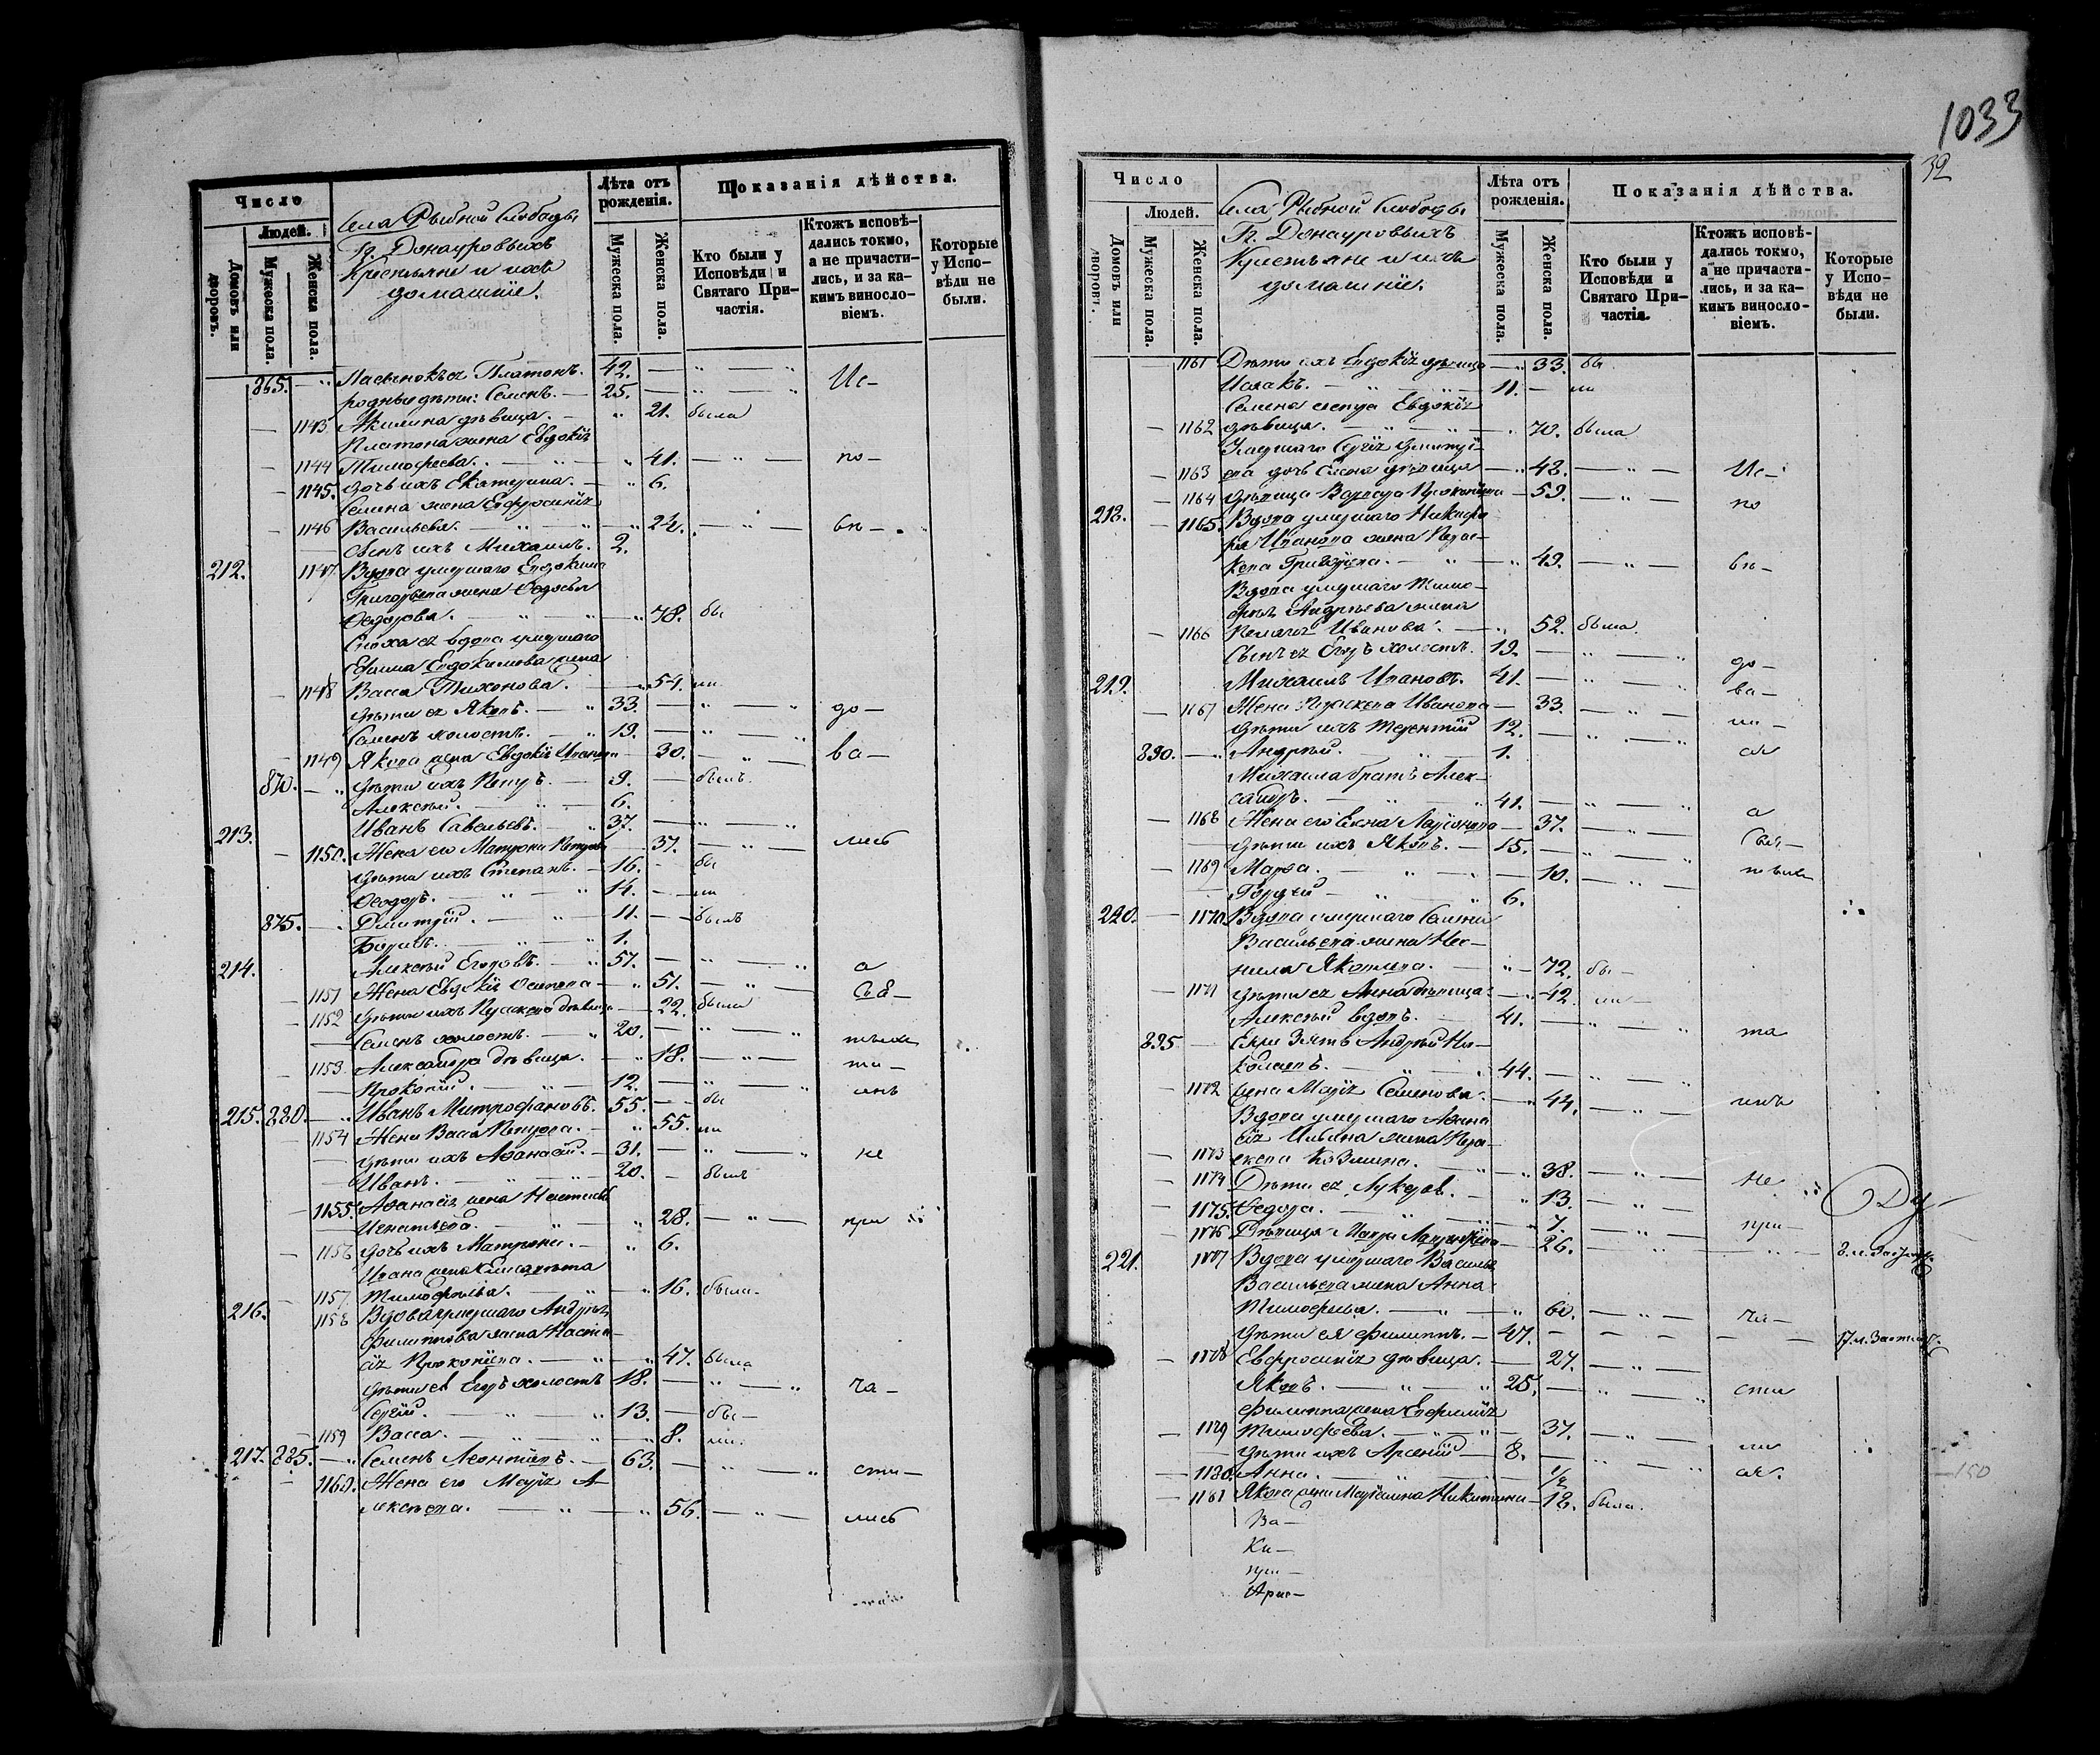 Число
Людей.
Домовъ или дворовъ.
Мужеска пола.
Женска пола.
Села Рыбной Слободы
Гг. Донауровыхъ
Крестьяне и ихъ
домашніе.
Лѣта отъ рожденія.
Мужеска пола.
Женска пола.
Показанія дѣйства.
Кто были у Исповѣди и Святаго Причастія.
Ктожъ исповѣдались токмо, а не причастились, и за какимъ винословіемъ.
Которые у Исповѣди не были.
865. Пасынокъ ея Платонъ. 42. Ис-
родные дѣти: Семенъ. 25.
1143 Акилина дѣвица. 21. была
Платона жена Евдокія
1144 Тимофеева. 41. по-
1145. дочь ихъ Екатерина. 6.
Семена жена Евфросинія
1146 Васильева. 24. вѣ-
сынъ ихъ Михаилъ. 2.
212. 1147 Вдова умершаго Евдокима
Григорьева жена Ѳедосья
Ѳедорова. 78. бы
Сноха ея вдова умершаго
Евдокимова жена
1148 Васса Тихонова. 54. ли
дѣти ея Яковъ. 33. до-
Семенъ холостъ. 19.
1149 Якова жена Евдокія Иванова 30. ва-
870. дѣти ихъ Петръ. 9. былъ
Алексѣй. 6.
213. Иванъ Савельевъ. 37.
1150. Жена его Матрона Петрова 37. лись
дѣти ихъ Степанъ. 16. бы
Ѳеодоръ. 14. ли
875. Дмитрій. 11. былъ
Борисъ. 1.
214. Алексѣй Егоровъ. 57. а
1151 Жена Евдокія Осипова 51. Св-
1152 дѣти ихъ Праскева дѣвица 22. была
Семенъ холостъ. 20.
1153 Александра дѣвица. 18. та-
Прокопій. 12. инъ
215. 880. Иванъ Митрофановъ. 55. бы
1154 Жена Васса Петрова. 55. ли
дѣти ихъ Аѳанасій. 31. не
Иванъ. 20. былъ
1155. Аѳанасія жена
Игнатьева. 28. при
1156 дочь ихъ Матрона. 6.
Ивана жена Елисавета
1157. Тимофѣева. 16. была
216. 1158 Вдова умершаго Андрея
Филиппова жена Настасія
Прокопіева. 47. была
дѣти ея Егоръ холостъ 18. ча-
Сергій. 13. бы-
1159 Васса. 8. ли.
217. 885. Семенъ Леонтіевъ. 63. сти-
1160. Жена его Марія А-
лексѣева. 56. лись
1033
32
Число
Людей.
Домовъ или дворовъ.
Мужеска пола.
Женска пола.
Села Рыбной Слободы
Гг. Донауровыхъ
Крестьяне и ихъ
домашніе.
Лѣта отъ рожденія.
Мужеска пола.
Женска пола.
Показанія дѣйства.
Кто были у Исповѣди и Святаго Причастія.
Ктожъ исповѣдались токмо, а не причастились, и за какимъ винословіемъ.
Которые у Исповѣди не были.
1161 Дѣти ихъ Евдокія дѣвица 33. бы
Исаакъ. 11. ли
Семена сестра Евдокія
1162 дѣвица. 70. была
Умершаго Сергія Дмитрі-
1163 ева дочь дѣвица 43. Ис-
1164 дѣвица Варвара Прокопіева 59. по
218. 1165. Вдова умершаго Никифо
ра Иванова жена Прас-
кева Григорьева. 49. вѣ-
Вдова умершаго Тимо-
фея Андреева жена
1166 Пелагея Иванова. 52. была.
Сынъ ея Егоръ холостъ. 19. до-
219. Михаилъ Ивановъ. 41. ва-
1167 Жена Праскева Иванова 33. ли-
дѣти ихъ Терентій 12. ся
890. Андрей. 1.
Михаила братъ Алек-
сандръ. 41. а
1168 Жена его Екна Ларіонова 37. Свя-
дѣти ихъ Яковъ. 15.
1169 Марѳа. 10.
Гордѣй 6.
220. 1170 Вдова умершаго Семена
Васильева жена Нео-
нила Яковлева. 72. бы-
1171 дѣти ея Анна дѣвица. 42. ли-
Алексѣй вдовъ. 41. та
895 Ея зять Андрей Ни-
колаевъ. 44.
1172 жена Марія Семенова. 44. инъ
Вдова умершаго Аѳана
сія Ильина жена Пра-
1173 скева Козмина. 38. не
1174 Дѣти ея Лукерья. 13.
1175. Ѳедора. 7. при-
1176 Дѣвица 26.
221. 1177 Вдова умершаго Василья
Васильева жена Анна
Тимофѣева. 60. ча-
дѣти ея Филиппъ. 47.
1178 Евфросинія дѣвица. 27.
Яковъ. 25. сти
Филиппа жена Евфимія
1179 Тимофѣева. 37. ли
дѣти ихъ Арсеній 8. ся.
1180. Анна. 1/2
1181 Якова жена Никитина 18. была.
Ва-
Ки-
при-
150